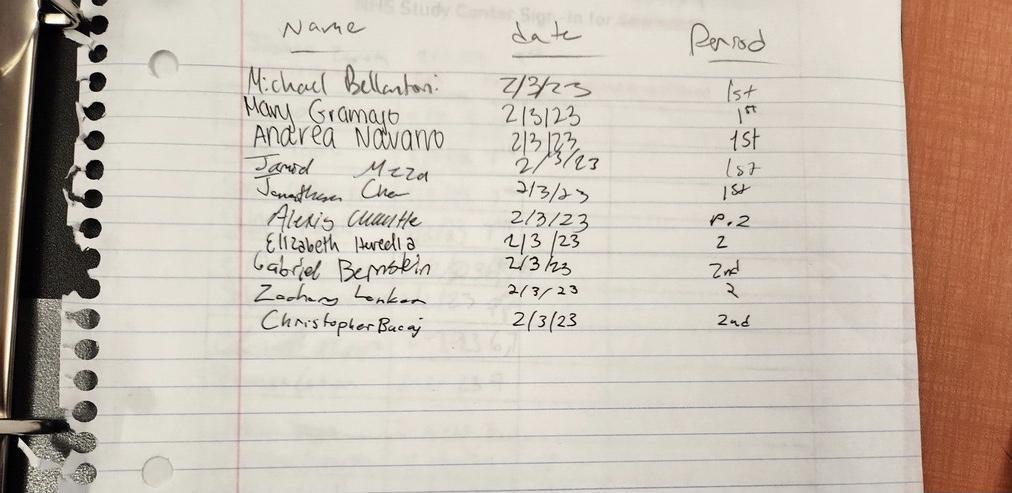 NHS Study Center Sign-In for
Name date Period
Michael Bellantoni 2/3/23 1st
Mary Gramajo 2/3/23 1st
Andrea Navarro 2/3/23 1st
Jarod Meza 2/3/23 1st
Jonathan 2/3/23 1st
Alexis 2/3/23 P.2
Elizabeth Heredia 2/3/23 2
Gabriel Bernstein 2/3/23 2nd
Zachary 2/3/23 2
Christopher Bacaj 2/3/23 2nd